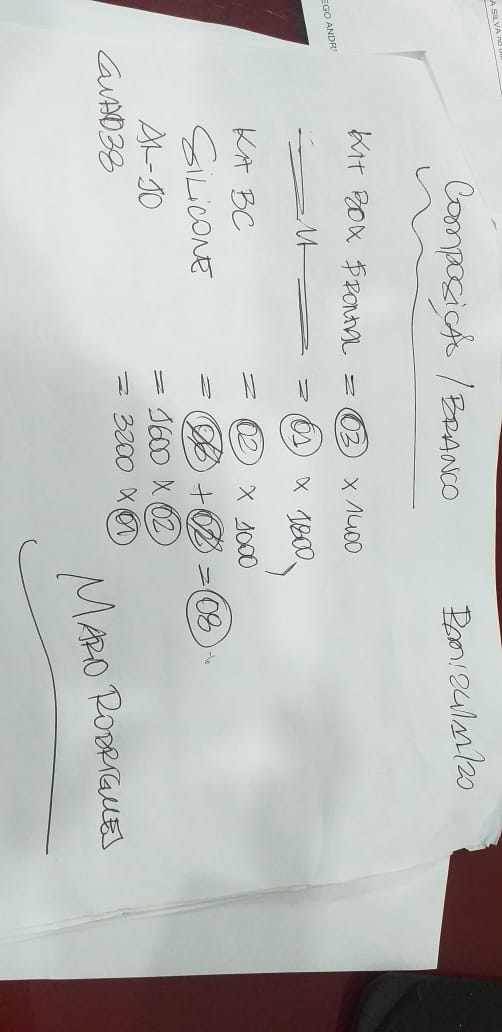 A SILVA
EGO ANDR
Composição / BRANCO
Kit BOX FRONTAL = 03 x 1400
11 = 01 x 1800
Kit BC = 02 x 1000
SILICONE = 06 + 02 = 08
AL-10 = 1600 x 02
CWAD38 = 3200 x 01
MARIO RODRIGUES